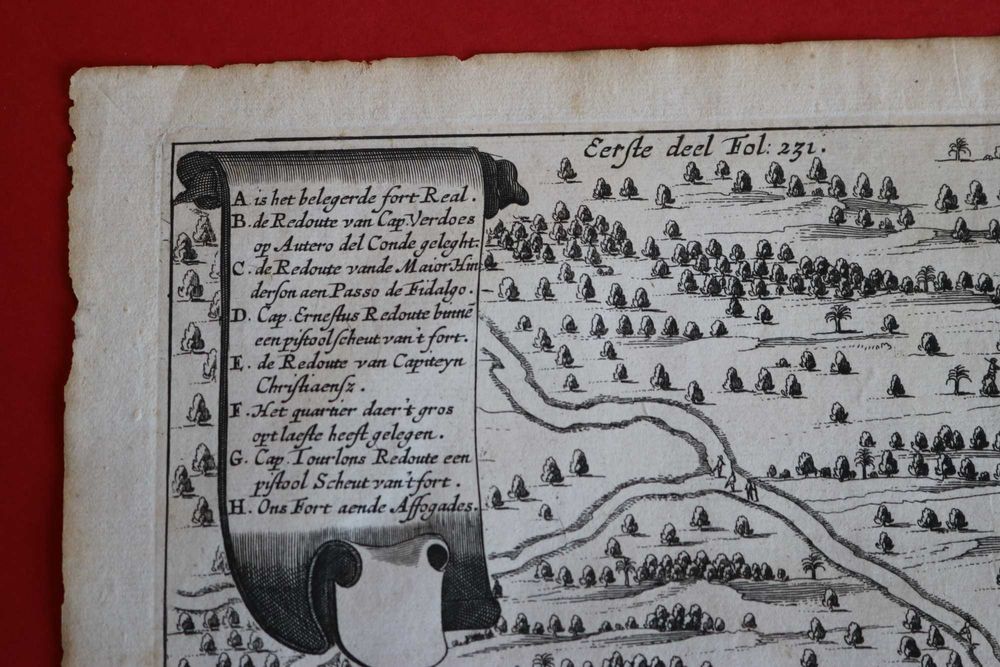 Eerste deel Fol: 231.
A. is het belegerde fort Real.
B. de Redoute van Cap. Verdoes
op Autero del Conde geleght.
C. de Redoute vande Maior Hin
derson aen Passo de Fidalgo.
D. Cap. Ernestus Redoute binnē
een pistoolscheut van't fort.
E. de Redoute van Capiteyn
Christiaensz.
F. Het quartier daer't gros
opt laeste heeft gelegen.
G. Cap. Tourlons Redoute een
pistool Scheut van't fort.
H. Ons Fort aende Affogades.